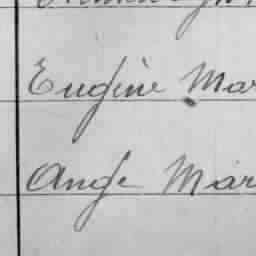 Eugène Mar
Ange Mar